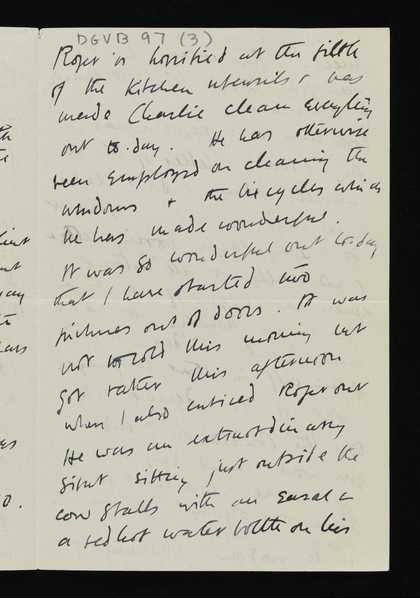 DGVB 97 (3)
Roger is horrified at the filth
of the kitchen utensils & has
made Charlie clean everything
out to-day. He has otherwise
been employed on cleaning the
windows & the bicycles which
he has made wonderful.
It was so wonderful out to-day
that I have started two
pictures out of doors. It was
not cold this morning but
got rather this afternoon
when I also enticed Roger out
He was an extraordinary
sight sitting just outside the
cow stalls with an easel &
a red hot water bottle on his